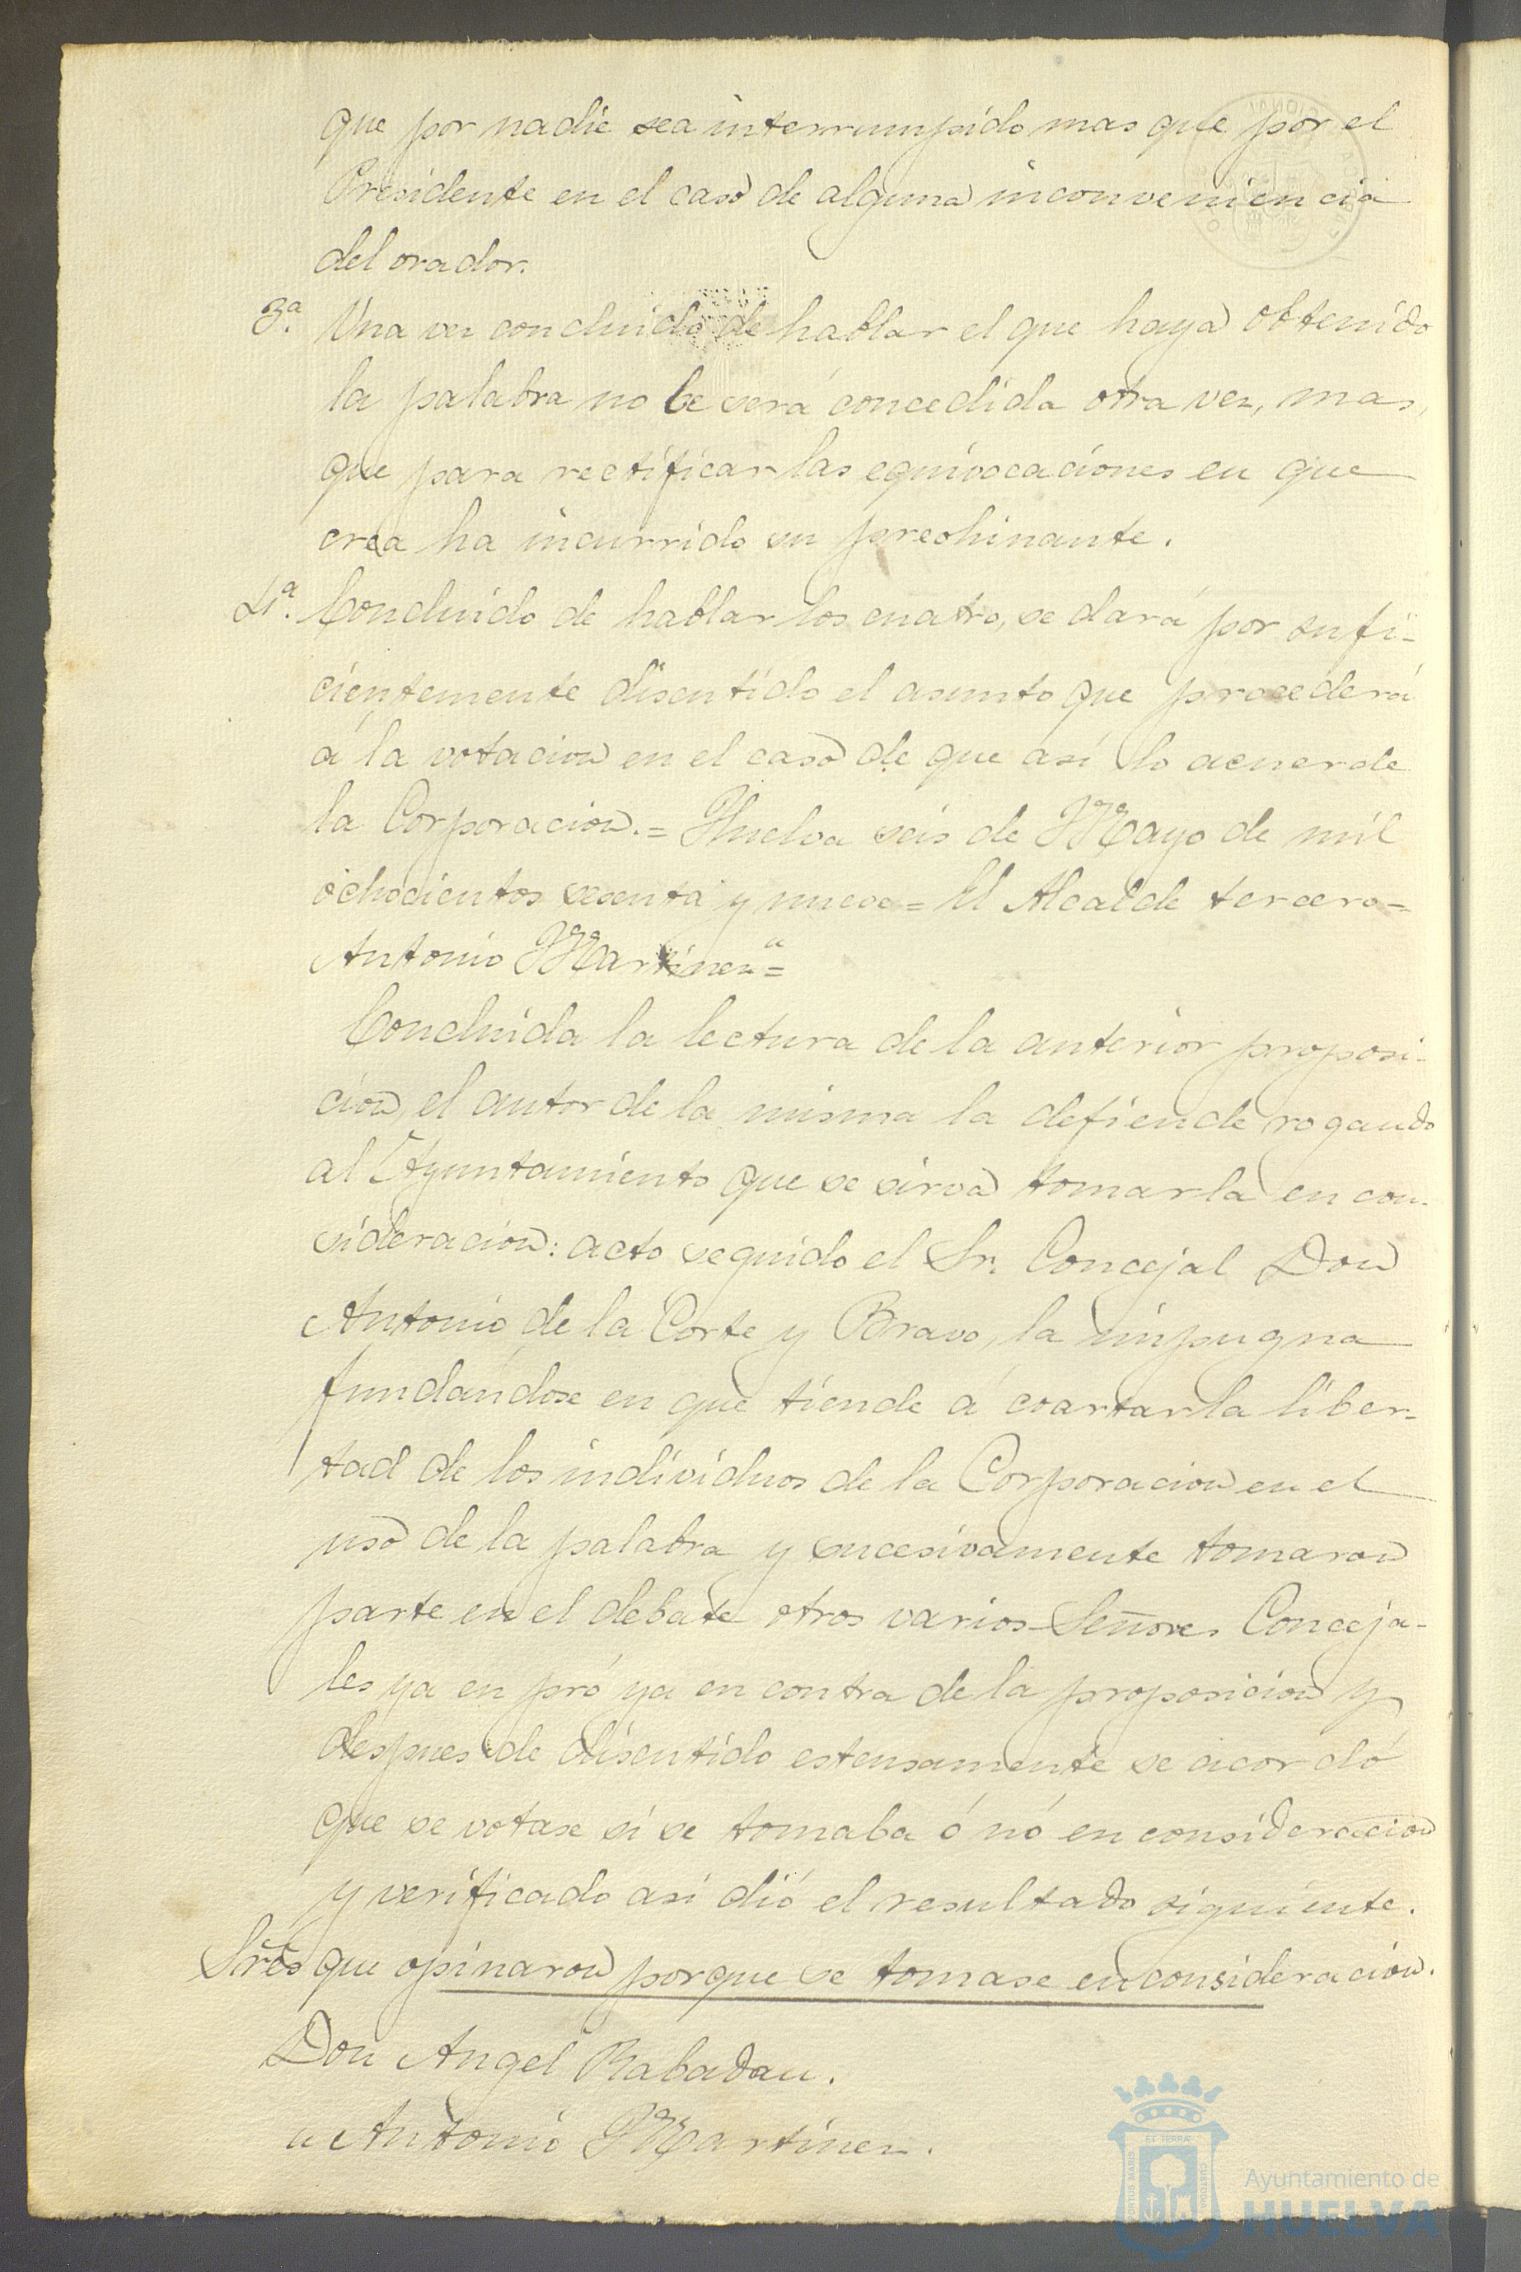 que por nadie sea interrumpido mas que por el
Presidente en el caso de alguna inconveniencia
del orador.
3ª. Una vez concluido de hablar el que haya obtenido
la palabra no le será concedida otra vez, mas,
que para rectificar las equivocaciones en que
crea ha incurrido su preohinante.
4ª. Concluido de hablar los cuatro, se dará por sufi-
cientemente discutido el asunto que procederá
á la votacion en el caso de que asi lo acuerde
la Corporacion.= Huelva seis de Mayo de mil
ochocientos sesenta y nueve= El Alcalde tercero=
Antonio Martinez"=
Concluida la lectura de la anterior proposi-
cion, el autor de la misma la defiende rogando
al Ayuntamiento que se sirva tomarla en con-
sideracion: acto seguido el Sr. Concejal Don
Antonio de la Corte y Bravo, la impugna
fundandose en que tiende á coartar la liber-
tad de los individuos de la Corporacion en el
uso de la palabra y sucesivamente tomaron
parte en el debate otros varios Señores Conceja-
les ya en pró ya en contra de la proposicion y
despues de discutido estensamente se acordó
que se votase si se tomaba ó nó en consideracion
y verificado asi dió el resultado siguiente.
Sres que opinaron porque se tomase en consideracion.
Don Angel Rabadan.
" Antonio Martinez.
ET TERRAE
PORTUS MARIS
CUSTODIA
Ayuntamiento de
HUELVA